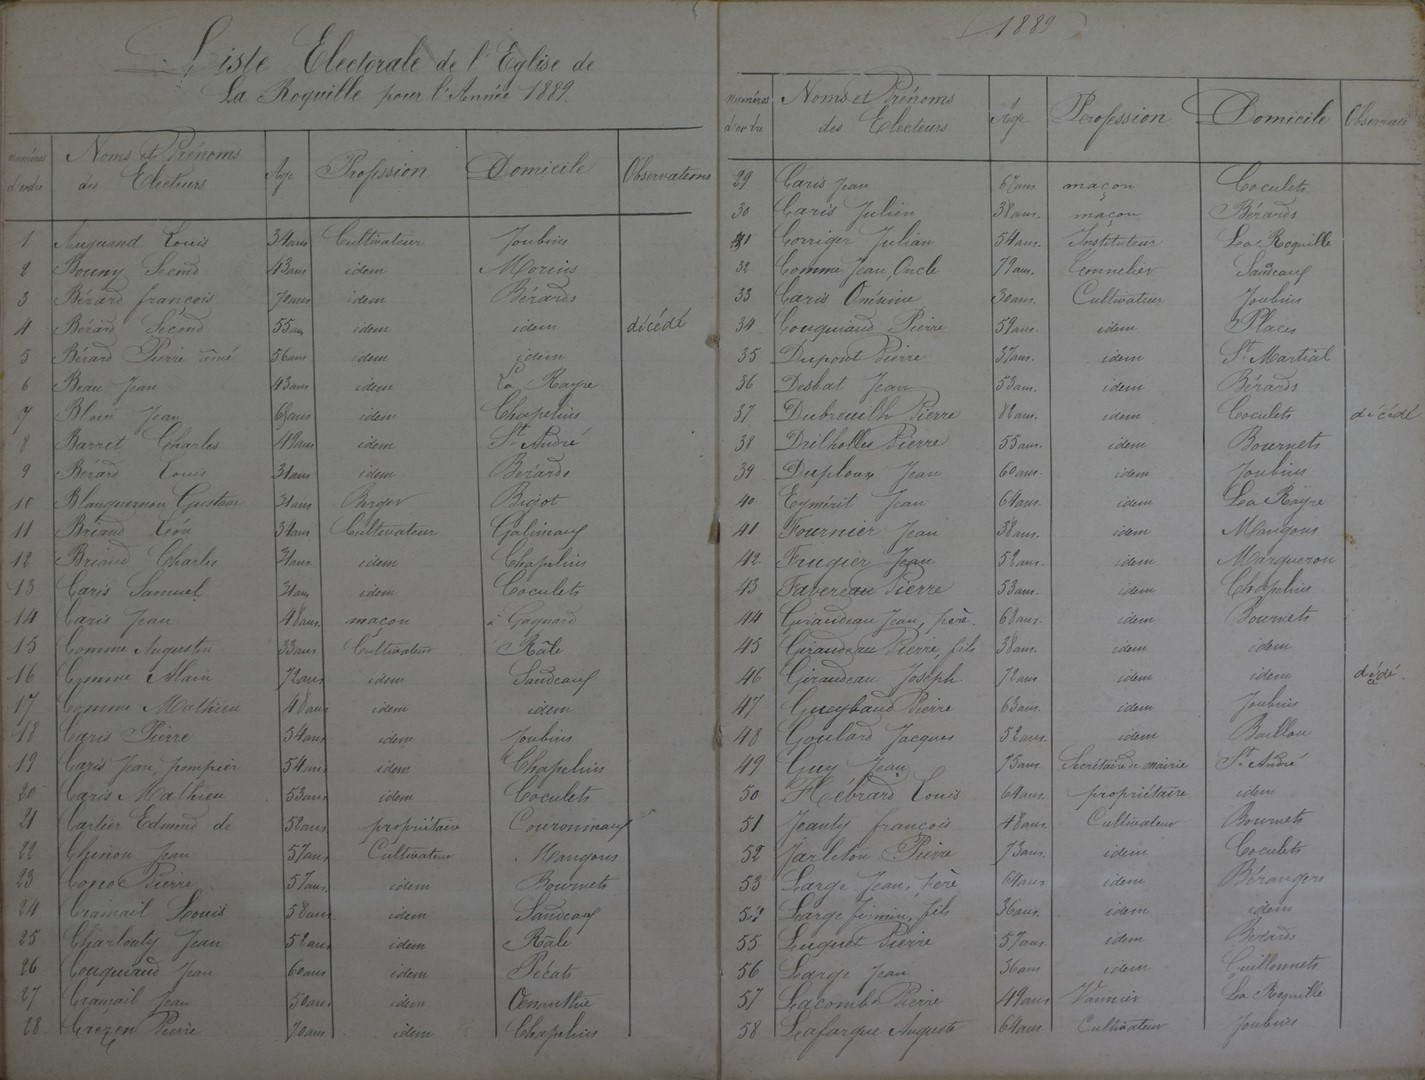 Liste Electorale de l'Eglise de
La Roquille pour l'Année 1889.
Numéros d'ordre Noms et Prénoms des Electeurs Age Profession Domicile Observations
1 Louis 34ans Cultivateur Joubius
2 Bouny Second 43ans idem Morins
3 Bérard françois 70ans idem Bérards
4 Bérard Second 55ans idem idem décédé
5 Bérard Pierre aîné 56ans idem idem
6 Beau Jean 43ans idem La Rayre
7 Blois Jean idem Chapelins
8 Barret Charles 49ans idem St André
9 Bérard Louis 31ans idem Bérards
10 Gustave 31ans Berger Bigot
11 Briand Léon 31ans Cultivateur Galineaux
12 Briand Charles 31ans idem Chapelins
13 Caris Samuel 31ans idem Coculets
14 Caris Jean 48ans maçon à Gagnard
15 Comme Augustin 33ans Cultivateur Râle
16 Comme Alain 72ans idem Saudeaux
17 Comme Mathieu 48ans idem idem
18 Caris Pierre 34ans idem Joubius
19 Caris Jean, pompier 54ans idem Chapelins
20 Caris Mathieu 53ans idem Coculets
21 Cartier Edmond de 52ans propriétaire Couronneaux
22 Chinon Jean 57ans Cultivateur Mangons
23 Pierre 57ans idem Bournets
24 Cramail Louis 58ans idem Saudeaux
25 Charlouty Jean 52ans idem Râle
26 Couquiaud Jean 60ans idem Pécats
27 Cramail Jean 50ans idem
28 Crozen Pierre 70ans idem Chapelins
1889
Numéros d'ordre Noms et Prénoms des Electeurs Age Profession Domicile Observati
29 Caris Jean 67ans maçon Coculets
30 Caris Julien 38ans. maçon Bérards
31 Corriger Julian 54ans. Instituteur La Roquille
32 Comme Jean, Oncle 79ans. Tonnelier Saudeaux
33 Caris Onésime 30ans. Cultivateur Joubius
34 Couquiaud Pierre 59ans. idem Places
35 Dupont Pierre 37ans. idem St Martial
36 Desbat Jean 53ans. idem Bérards
37 Dubreuilh Pierre 82ans. idem Coculets décédé
38 Drilholles Pierre 55ans. idem Bournets
39 Duplouy Jean 60ans. idem Joubius
40 Eymérit Jean 64ans. idem La Rayre
41 Fournier Jean 38ans. idem Mangons
42 Fougier Jean 52ans. idem Margueron
43 Favereau Pierre 53ans. idem Chapelins
44 Giraudeau Jean, père. 68ans. idem Bournets
45 Giraudeau Pierre, fils 38ans. idem idem
46 Giraudeau Joseph 72ans idem idem décédé.
47 Gueybaud Pierre 63ans. idem Joubius
48 Goulard Jacques 52ans. idem Baillou
49 Guy Jean 75ans. Secrétaire de mairie St André
50 Hébrard Louis 69ans. propriétaire idem
51 Jeanty françois 48ans. Cultivateur Bournets
52 Jarleton Pierre 73ans. idem Coculets
53 Large Jean, père 64ans idem Bérangers
54 Large firmin, fils 36ans. idem idem
55 Luquet Pierre 57ans. idem Bérards
56 Large Jean 36ans idem Guillonnets
57 Lacombe Pierre 49ans Vannier La Roquille
58 Lafargue Auguste 64ans. Cultivateur Joubius